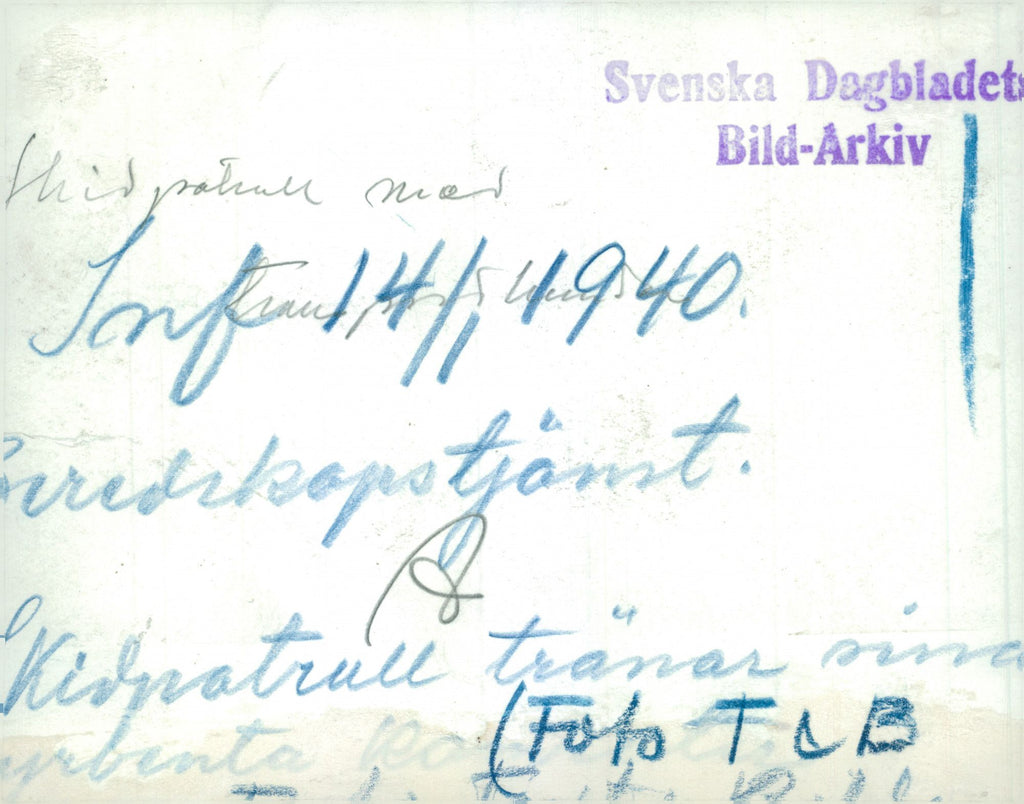 Svenska Dagbladets
Bild-Arkiv
Skidpatrull med
Inf 14/1 1940.
Beredskapstjänst.
Skidpatrull tränar sina
fyrbenta
(Foto T & B